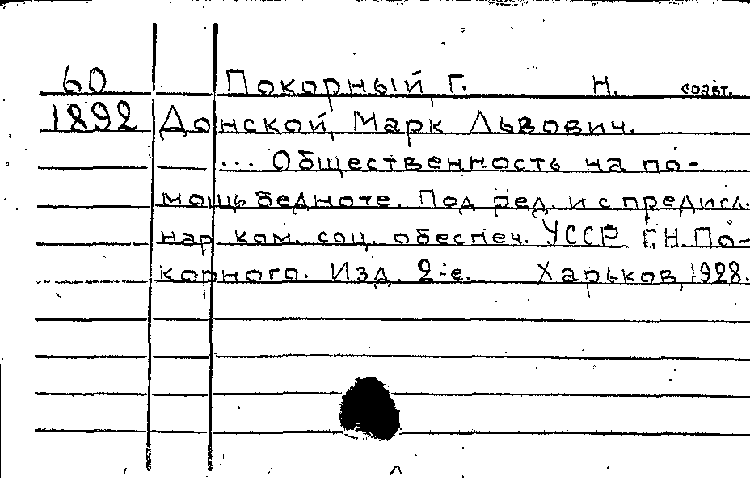 60 Покорный Г. Н. соавт.
1892 Донской, Марк Львович.
... Общественность на по-
мощь бедноте. Под ред. и с предисл.
нар. ком. соц. обеспеч. УССР Г.Н. По-
корного. Изд. 2-е. Харьков, 1928.